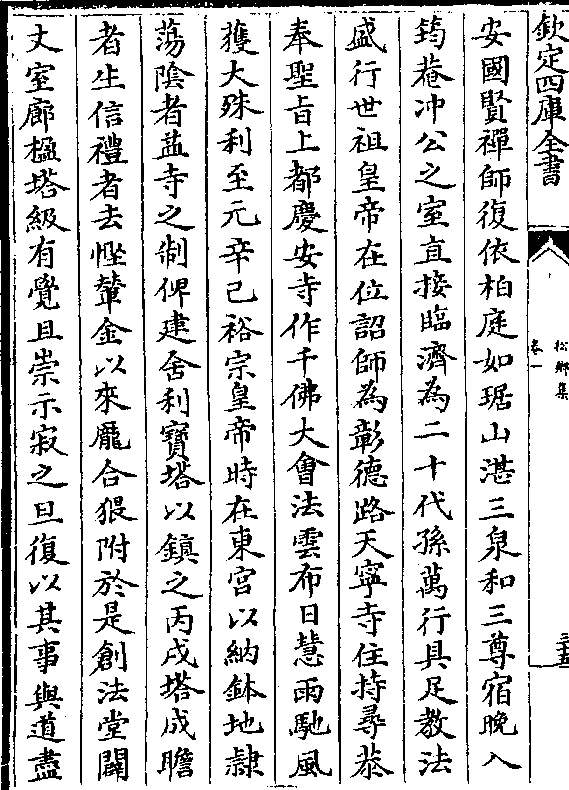 欽定四庫全書
松鄉集
卷一
三十五
安國賢禪師復依柏庭如琚山湛三泉和三尊宿晩入
筠菴冲公之室直接臨濟為二十代孫萬行具足教法
盛行世祖皇帝在位詔師為彰德路天寧寺住持尋恭
奉聖旨上都慶安寺作千佛大會法雲布日慧雨馳風
獲大殊利至元辛已裕宗皇帝時在東宮以納鉢地隷
蕩陰者益寺之制俾建舍利寶塔以鎮之丙戌塔成瞻
者生信禮者去慳輦金以來龎合狠附於是創法堂闢
丈室廊楹塔級有覺且崇示寂之旦復以其事與道盡